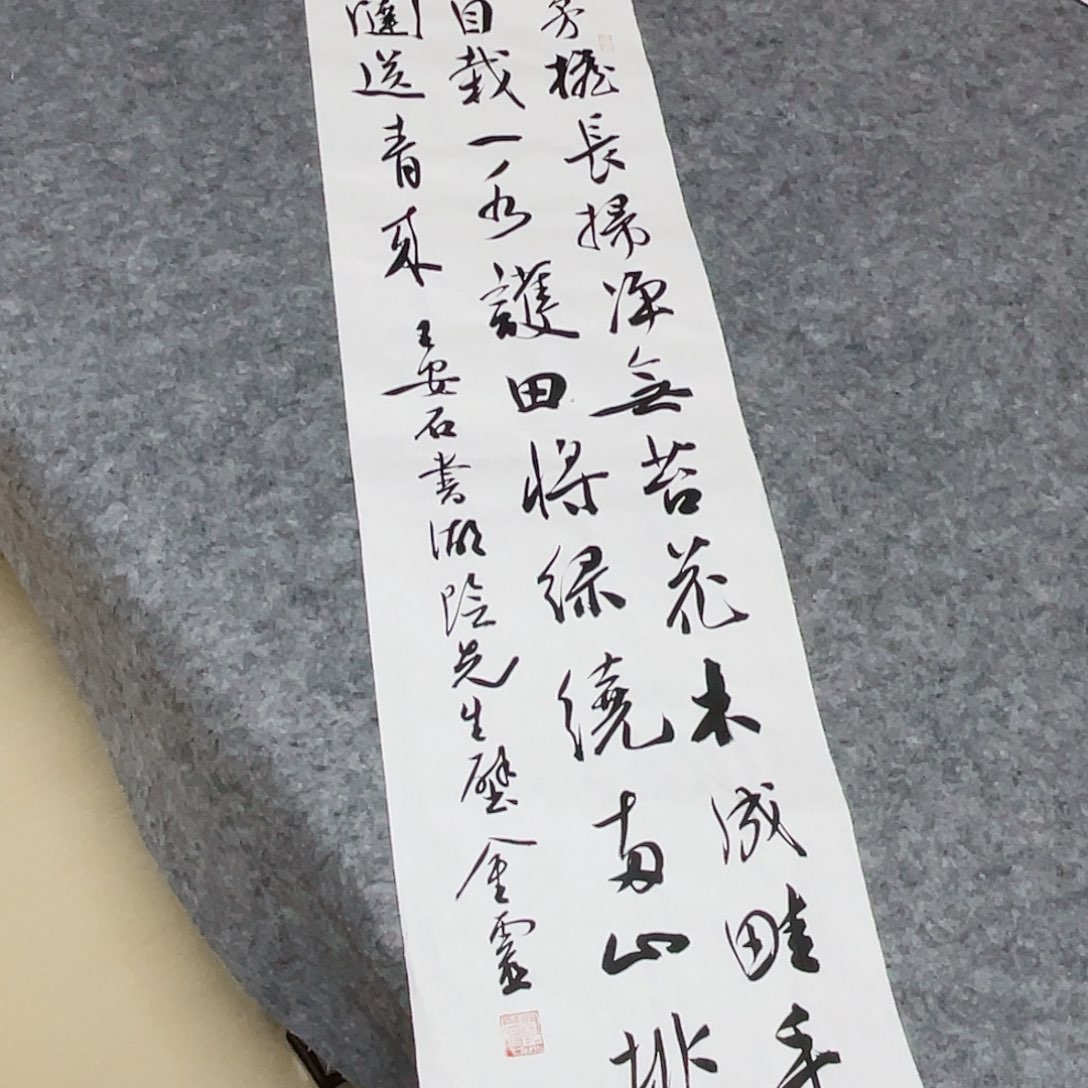 茅檐長掃淨無苔花木成畦手
自栽一水護田將綠繞兩山排
闥送青來
王安石書湖陰先生壁金靈